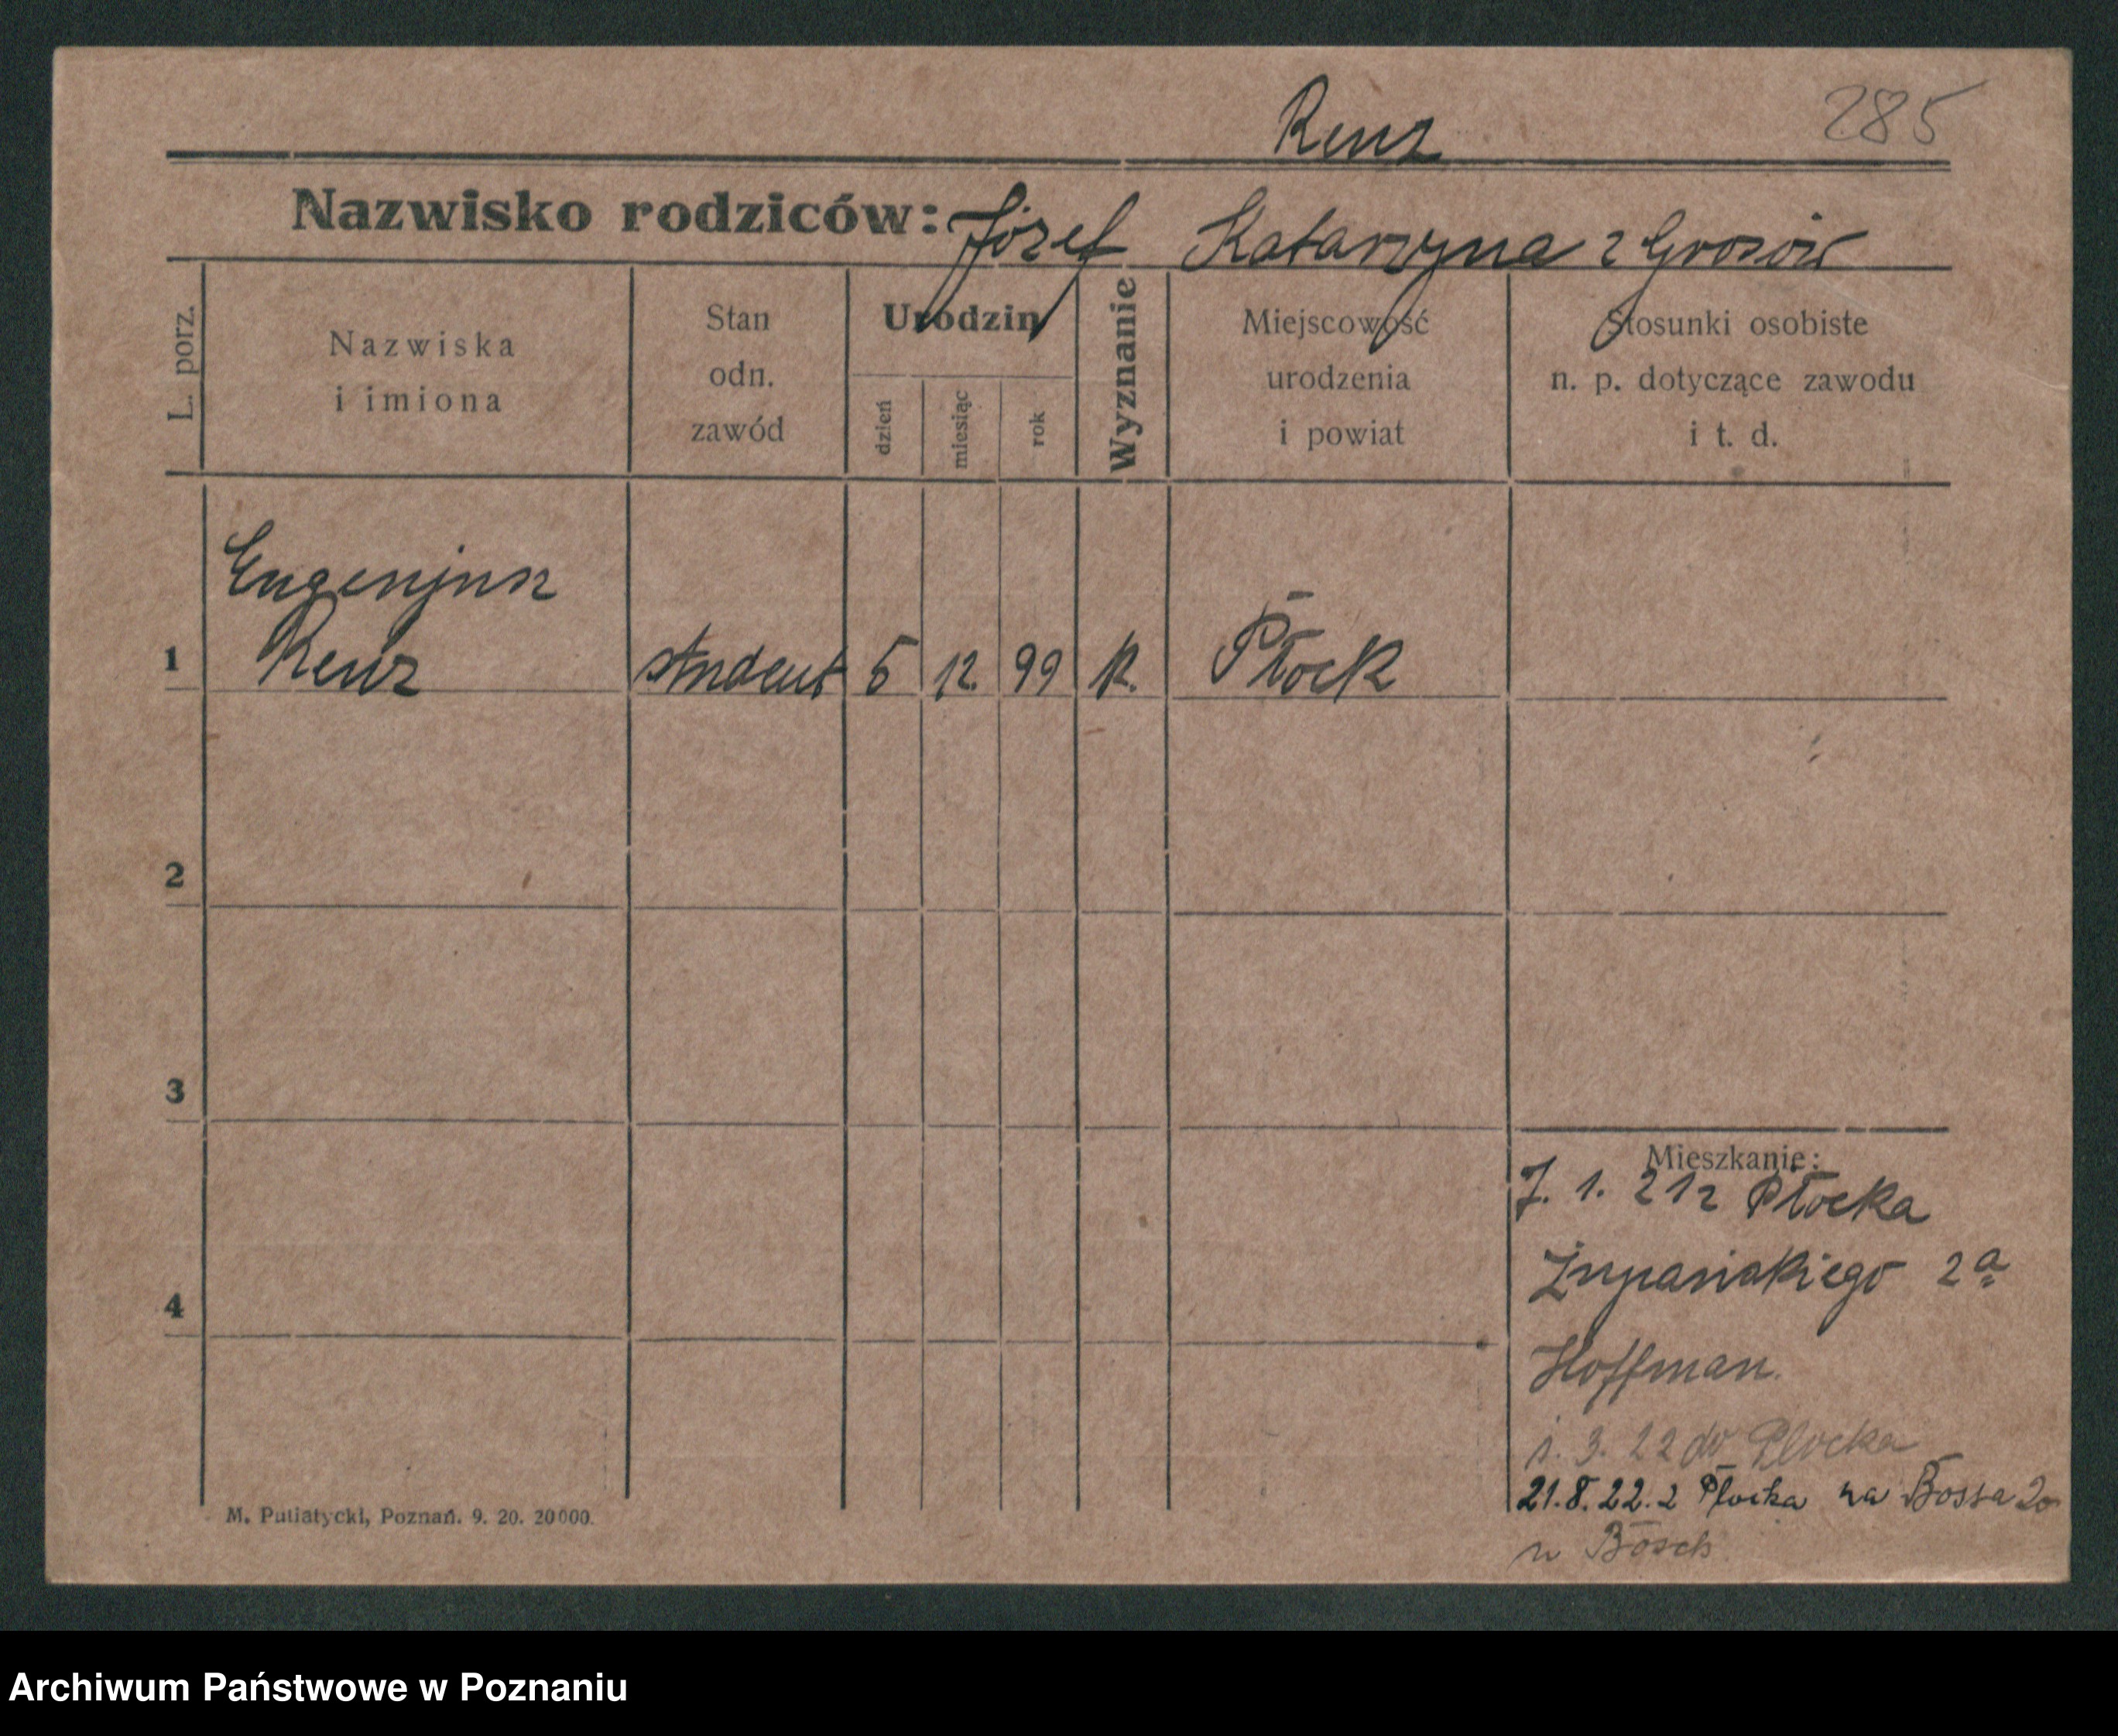 Renz 285
Nazwisko rodziców: Józef Katarzyna z Grosów
L. porz.
Nazwiska
i imiona
Stan
odn.
zawód
Urodzin
dzień
miesiąc
rok
Wyznanie
Miejscowość
urodzenia
i powiat
Stosunki osobiste
n. p. dotyczące zawodu
i t. d.
Eugenjusz
1 Renz student 5 12. 99 k. Płock
2
3
Mieszkanie:
7. 1. 21 z Płocka
Żupańskiego 2a
4
Hoffman.
1. 3. 22 do Płocka
21. 8. 22. z Płocka na Bossa 20
u Bösch
M. Putiatycki, Poznań. 9. 20. 20000.
Archiwum Państwowe w Poznaniu